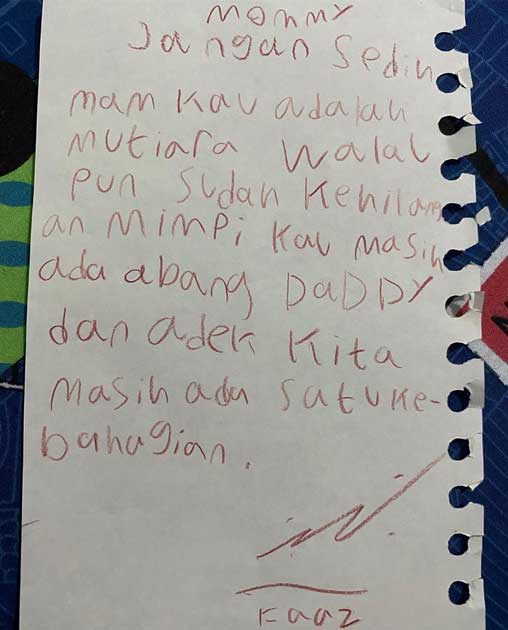 Mommy
Jangan Sedih
mam kau adalah
Mutiara walau
pun sudah kehilang
an Mimpi kau masih
ada abang DaDDY
dan adek kita
masih ada satu ke-
bahagian.
Faaz